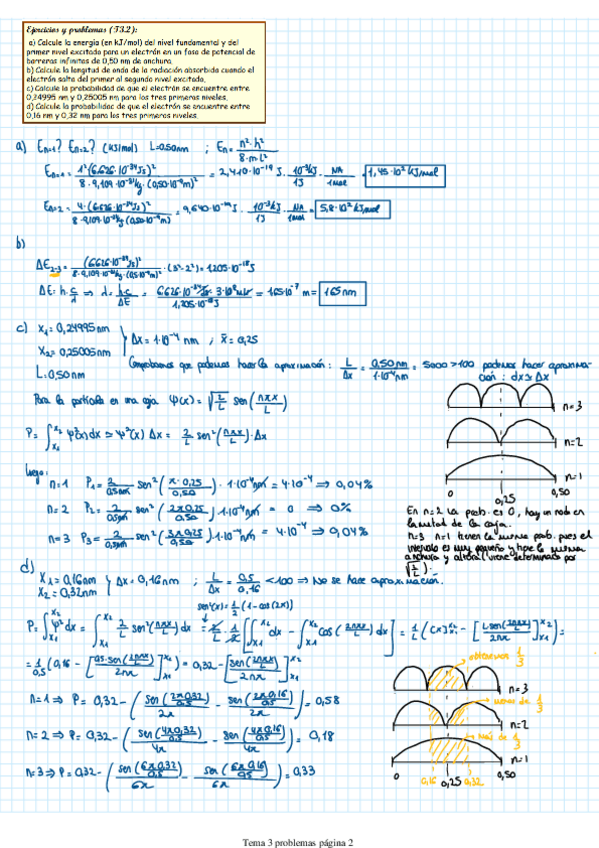 Ejercicios y problemas (T3.2):
a) Calcule la energía (en kJ/mol) del nivel fundamental y del
primer nivel excitado para un electrón en un foso de potencial de
barreras infinitas de 0,50 nm de anchura.
b) Calcule la longitud de onda de la radiación absorbida cuando el
electrón salta del primer al segundo nivel excitado.
c) Calcule la probabilidad de que el electrón se encuentre entre
0,24995 nm y 0,25005 nm para los tres primeros niveles.
d) Calcule la probabilidad de que el electrón se encuentre entre
0,16 nm y 0,32 nm para los tres primeros niveles.
a) En=1? En=2? (kJ/mol) L=0.50nm ; En = n²·h² / 8·m·L²
En=1 = 1²(6.626·10⁻³⁴Js)² / 8·9,109·10⁻³¹kg·(0,50·10⁻⁹m)² = 2,410·10⁻¹⁹ J · 10⁻³kJ/1J · NA/1mol = 1,45·10² kJ/mol
En=2 = 4·(6.626·10⁻³⁴Js)² / 8·9.109·10⁻³¹kg·(0,50·10⁻⁹m)² = 9,640·10⁻¹⁹ J · 10⁻³kJ/1J · NA/1mol = 5,8·10² kJ/mol
b)
ΔE2-3 = (6.626·10⁻³⁴Js)² / 8·9.109·10⁻³¹kg·(0,5·10⁻⁹m)² · (3²-2²) = 1.205·10⁻¹⁸ J
ΔE = h·c/λ ⇒ λ = h·c/ΔE = 6.626·10⁻³⁴Js · 3·10⁸m/s / 1,205·10⁻¹⁸J = 1.65·10⁻⁷ m = 165nm
c) X1 = 0,24995nm
X2 = 0,25005nm
Δx = 1·10⁻⁴ nm ; x̄ = 0,25
L = 0,50nm
Comprobamos que podemos hacer la aproximación: L/Δx = 0,50nm / 1·10⁻⁴nm = 5000 >100 podemos hacer aproxima-
ción: dx ≃ Δx
Para la partícula en una caja ψ(x) = √(2/L) sen(nπx/L)
P = ∫x1x2 ψ²(x)dx ≃ ψ²(x) Δx = 2/L sen²(nπx/L)·Δx
n=3
n=2
n=1
0 0,25 0,50
luego:
n=1 P1 = 2/0.5nm sen²(π·0,25/0,50) · 1·10⁻⁴nm = 4·10⁻⁴ ⇒ 0,04%
n=2 P2 = 2/0.5nm sen²(2π0,25/0.50) · 1·10⁻⁴nm = 0 ⇒ 0%
n=3 P3 = 2/0,5nm sen²(3π0,25/0.50) · 1·10⁻⁴nm = 4·10⁻⁴ ⇒ 0,04%
En n=2 la prob. es 0, hay un nodo en
la mitad de la caja.
n=3 n=1 tienen la misma prob. pues el
intervalo es muy pequeño y tiene la misma
anchura y altura (viene determinado por
√(2/L)).
d)
X1 = 0,16nm
X2 = 0,32nm
Δx = 0,16nm ; L/Δx = 0,5/0,16 <100 ⇒ No se hace aproximación.
sen²(x) = 1/2 (1-cos(2x))
P = ∫x1x2 ψ² dx = ∫x1x2 2/L sen²(nπx/L) dx = 2/L · 1/2 [∫x1x2 dx - ∫x1x2 cos(2nπx/L) dx] = 1/L ([x]x1x2 - [L·sen(2nπx/L)/2nπ]x1x2) =
= 1/0,5 (0,16 - [0.5·sen(2nπx/L)/2nπ]x1x2) = 0,32 - [sen(2nπx/L)/2nπ]x1x2
n=1 ⇒ P = 0,32 - (sen(2π0,32/0,5)/2π - sen(2π0,16/0,5)/2π) = 0,58
n=2 ⇒ P = 0,32 - (sen(4π0,32/0.5)/4π - sen(4π0,16/0.5)/4π) = 0,18
n=3 ⇒ P = 0,32 - (sen(6π0,32/0.5)/6π - sen(6π0,16/0.5)/6π) = 0,33
1/3
n=3
menos de 1/3
n=2
Más de 1/3
n=1
0 0,16 0,25 0,32 0,50
Tema 3 problemas página 2